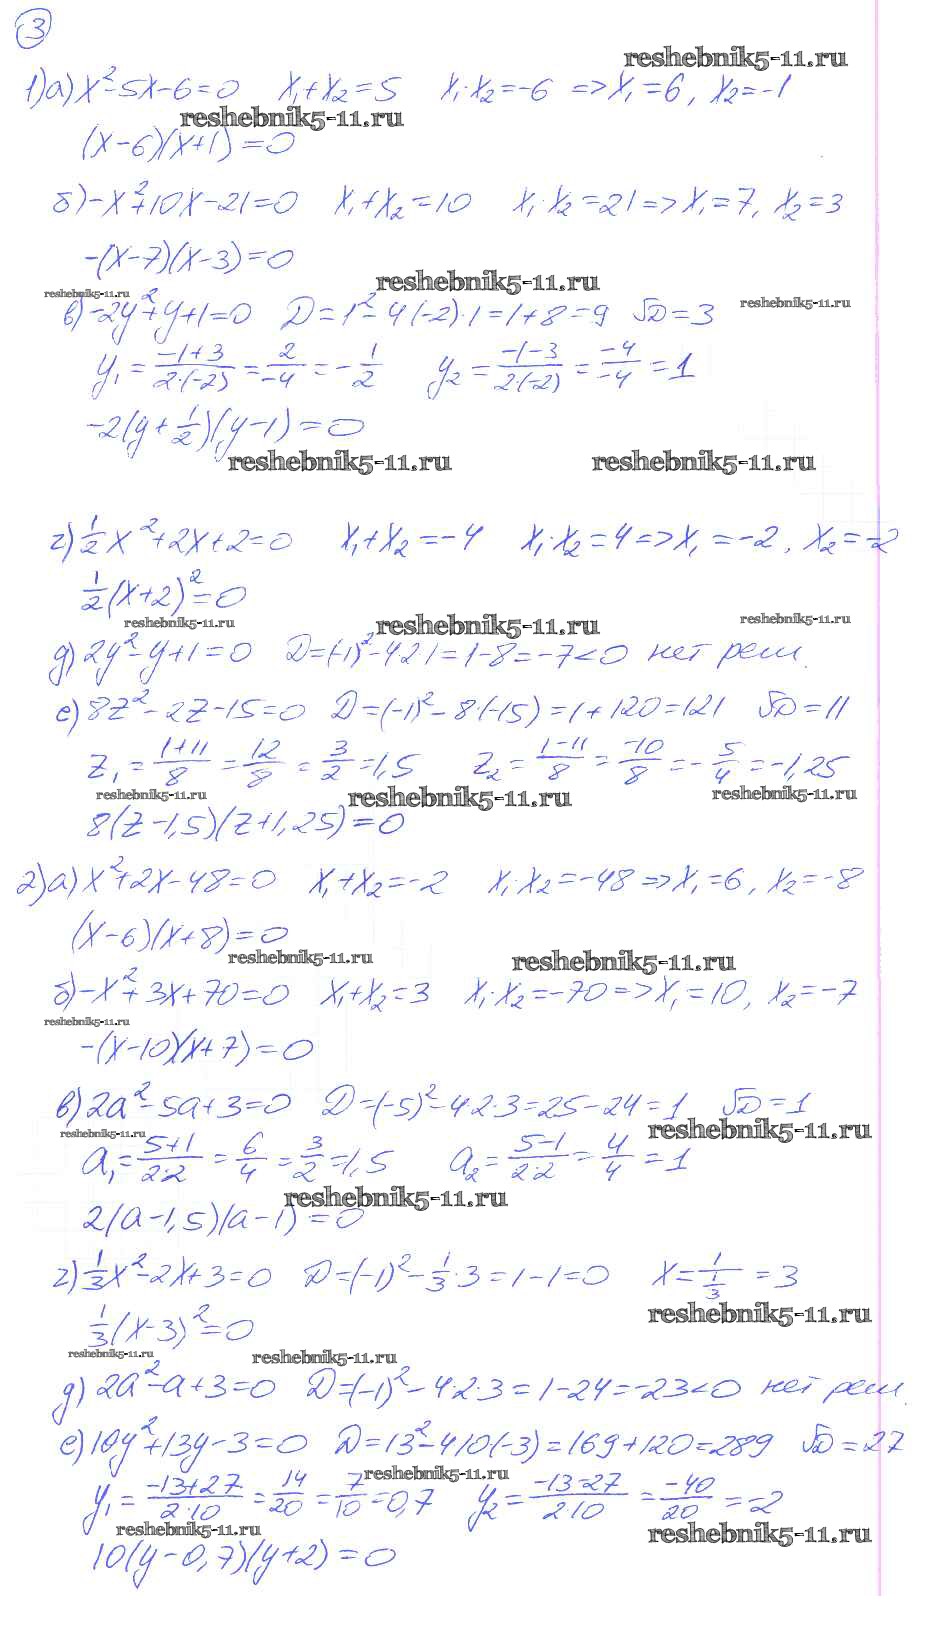 3
reshebnik5-11.ru
1) а) x²-5x-6=0 x₁+x₂=5 x₁·x₂=-6 => x₁=6, x₂=-1
reshebnik5-11.ru
(x-6)(x+1)=0
б) -x²+10x-21=0 x₁+x₂=10 x₁·x₂=21 => x₁=7, x₂=3
-(x-7)(x-3)=0
reshebnik5-11.ru
reshebnik5-11.ru reshebnik5-11.ru
в) -2y²+y+1=0 D=1²-4(-2)·1=1+8=9 √D=3
y₁=(-1+3)/(2·(-2))=2/-4=-1/2 y₂=(-1-3)/(2(-2))=-4/-4=1
-2(y+1/2)(y-1)=0
reshebnik5-11.ru reshebnik5-11.ru
г) 1/2x²+2x+2=0 x₁+x₂=-4 x₁·x₂=4 => x₁=-2, x₂=-2
1/2(x+2)²=0
reshebnik5-11.ru reshebnik5-11.ru reshebnik5-11.ru
д) 2y²-y+1=0 D=(-1)²-4·2·1=1-8=-7<0 нет реш.
е) 8z²-2z-15=0 D=(-1)²-8·(-15)=1+120=121 √D=11
z₁=(1+11)/8=12/8=3/2=1,5 z₂=(1-11)/8=-10/8=-5/4=-1,25
reshebnik5-11.ru reshebnik5-11.ru reshebnik5-11.ru
8(z-1,5)(z+1,25)=0
2) а) x²+2x-48=0 x₁+x₂=-2 x₁·x₂=-48 => x₁=6, x₂=-8
(x-6)(x+8)=0
reshebnik5-11.ru reshebnik5-11.ru
б) -x²+3x+70=0 x₁+x₂=3 x₁·x₂=-70 => x₁=10, x₂=-7
reshebnik5-11.ru
-(x-10)(x+7)=0
в) 2a²-5a+3=0 D=(-5)²-4·2·3=25-24=1 √D=1
reshebnik5-11.ru reshebnik5-11.ru
a₁=(5+1)/(2·2)=6/4=3/2=1,5 a₂=(5-1)/(2·2)=4/4=1
reshebnik5-11.ru
2(a-1,5)(a-1)=0
г) 1/3x²-2x+3=0 D=(-1)²-1/3·3=1-1=0 x=1/(1/3)=3
reshebnik5-11.ru
1/3(x-3)²=0
reshebnik5-11.ru reshebnik5-11.ru
д) 2a²-a+3=0 D=(-1)²-4·2·3=1-24=-23<0 нет реш.
е) 10y²+13y-3=0 D=13²-4·10(-3)=169+120=289 √D=27
reshebnik5-11.ru
y₁=(-13+27)/(2·10)=14/20=7/10=0,7 y₂=(-13-27)/(2·10)=-40/20=-2
reshebnik5-11.ru reshebnik5-11.ru
10(y-0,7)(y+2)=0